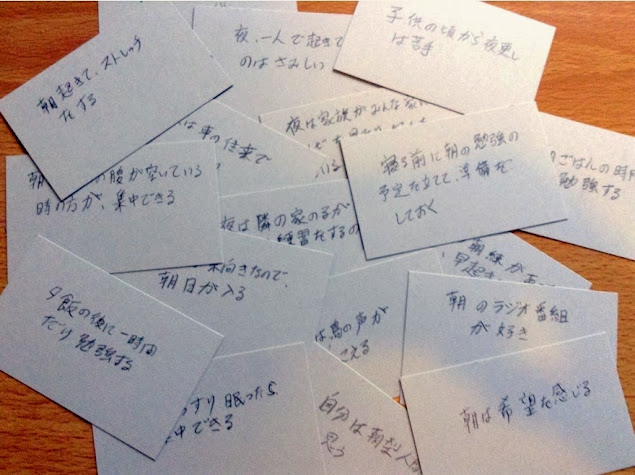 朝起きて、ストレッチ
をする
夜、一人で起きて
のはさみしい
子供の頃から夜更し
は苦手
は車の往来で
夜は家族がみんな家に
いる
寝る前に朝の勉強の
予定を立てて、準備を
しておく
ごはんの時間
勉強する
朝
腹が空いている
時の方が、集中できる
夜は隣の家の子が
練習をするの
向きなので、
朝日が入る
朝練が
早起き
夕飯の後に一時間
だけ勉強する
は鳥の声が
こえる
朝のラジオ番組
が好き
すり眠ったら
中できる
自分は朝型人
思う
朝は希望を感じる